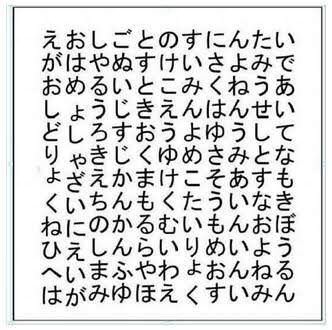 えおしごとのすにんたい
がはやぬすけいさよみで
おめるいとこみくねうあ
しょうじきえんはんせい
どしろすおうよゆうして
りゃきじくゆめさみとな
ょざえかまけこそあすも
くいちんもくたういなき
ねにのかるむいもんきぼ
ひえしんらいりめいよう
へいまふやわょおんねる
はがみゆほえくすいみん